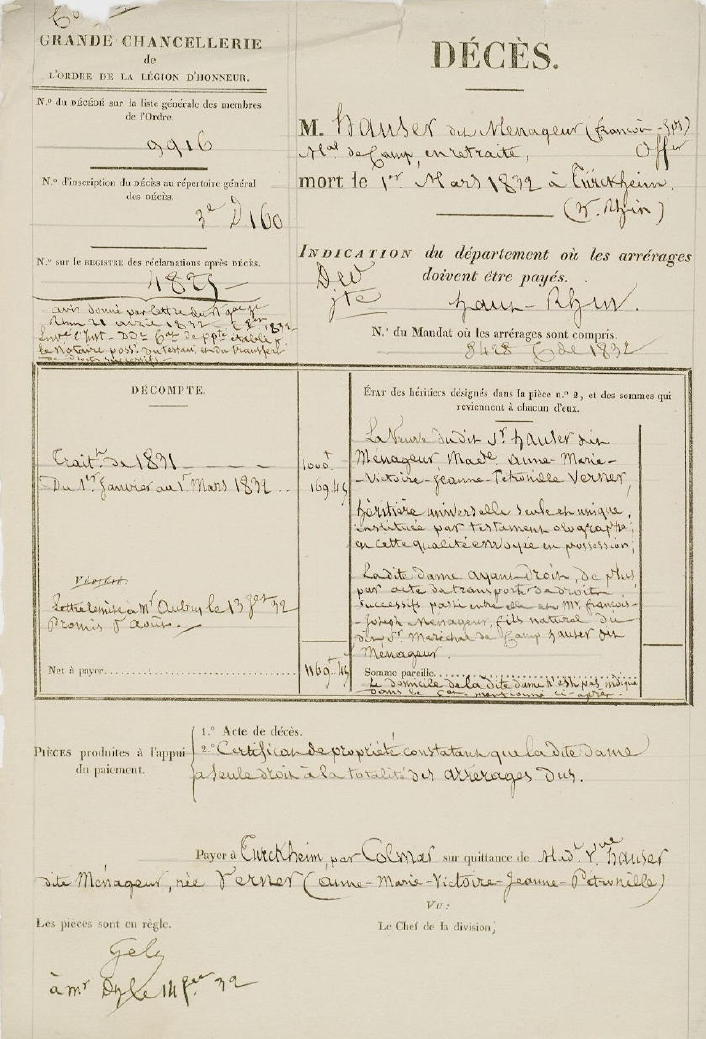 GRANDE CHANCELLERIE
de
L'ORDRE DE LA LÉGION D'HONNEUR.
N.º du DÉCÉDÉ sur la liste générale des membres
de l'Ordre.
9916
N.º d'inscription du DÉCÈS au répertoire général
des DÉCÈS.
3e D 160
N.º sur le REGISTRE des réclamations après DÉCÈS.
4825
avis donné par lettre du
21 avril 1832
DÉCÈS.
M. Hauser dit Menageur (françois-Jph)
Mal de Camp, en retraite, Offer
mort le 1er Mars 1832 à Turckheim.
(h. Rhin)
INDICATION du département où les arrérages
doivent être payés.
haut-Rhin.
N.º du Mandat où les arrérages sont compris.
8428 6 de 1832
DÉCOMPTE.
Traitt. de 1831 - - - - 1000f
Du 1er Janvier au 1er Mars 1832 .. 169.45
Lettre remise à Mr Aubry le 13 Jet 32
Promis 5 août.
Net à payer 1169f 45
ÉTAT des héritiers désignés dans la pièce n.º 2, et des sommes qui
reviennent à chacun d'eux.
La Veuve dudit Sr. hauser dit
Menageur, Made. anne-Marie-
Victoire-Jeanne-Petronille Verner,
héritière universelle seule et unique,
instituée par testament olographe;
en cette qualité envoyée en possession;
La dite dame ayant droit, de plus
par acte de transport de droits
successifs passé entre elle et Mr. françois-
Joseph Menageur, fils naturel du
dit Sr. Maréchal de Camp hauser dit
Menageur.
Somme pareille
Le domicile de la dite dame n'est pas indiqué
dans le mentionné ci-après.
PIÈCES produites à l'appui
du paiement.
1.º Acte de décès.
2.º Certificat de propriété constatant que la dite dame
a seule droit à la totalité des arrérages dus.
Payer à Turckheim, par Colmar sur quittance de Mde Vve hauser
dite Ménageur, née Verner (anne-Marie-Victoire-Jeanne-Petronille)
VU:
Les pièces sont en règle.
Le Chef de la division,
Gely
à Mr